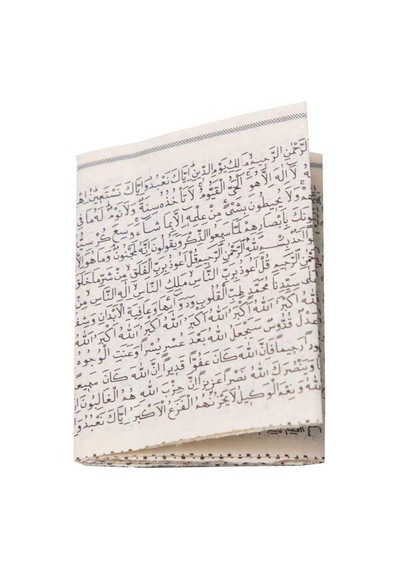 الرَّحْمٰنِ الرَّحِيمِ مٰلِكِ يَوْمِ الدِّينِ إِيَّاكَ نَعْبُدُ وَإِيَّاكَ نَسْتَعِينُ
لَا إِلَهَ إِلَّا هُوَ الْحَيُّ الْقَيُّومُ لَا تَأْخُذُهُ سِنَةٌ وَلَا نَوْمٌ لَهُ مَا فِي
وَلَا يُحِيطُونَ بِشَيْءٍ مِنْ عِلْمِهِ إِلَّا بِمَا شَاءَ وَسِعَ كُرْسِيُّهُ
بِأَبْصَارِهِمْ لَمَّا سَمِعُوا الذِّكْرَ وَيَقُولُونَ إِنَّهُ لَمَجْنُونٌ وَمَا هُوَ إِلَّا
اللهِ الرَّحْمٰنِ الرَّحِيمِ قُلْ أَعُوذُ بِرَبِّ الْفَلَقِ مِنْ شَرِّ مَا خَلَقَ
الرَّحْمٰنِ الرَّحِيمِ قُلْ أَعُوذُ بِرَبِّ النَّاسِ مَلِكِ النَّاسِ إِلَهِ النَّاسِ مِنْ
سَيِّدِنَا مُحَمَّدٍ طِبِّ الْقُلُوبِ وَدَوَائِهَا وَعَافِيَةِ الْأَبْدَانِ
اللهُ أَكْبَرُ اللهُ أَكْبَرُ اللهُ أَكْبَرُ اللهُ أَكْبَرُ اللهُ
قُدُّوسٌ سَيَجْعَلُ اللهُ بَعْدَ عُسْرٍ يُسْرًا وَعَنَتِ الْوُجُوهُ
رَحِيمًا فَإِنَّ اللهَ كَانَ عَفُوًّا قَدِيرًا إِنَّ اللهَ كَانَ سَمِيعًا
وَيَنْصُرَكَ اللهُ نَصْرًا عَزِيزًا إِنَّ حِزْبَ اللهِ هُمُ الْغَالِبُونَ
وَنِعْمَ الْوَكِيلُ لَا يَحْزُنُهُمُ الْفَزَعُ الْأَكْبَرُ إِيَّاكَ نَعْبُدُ